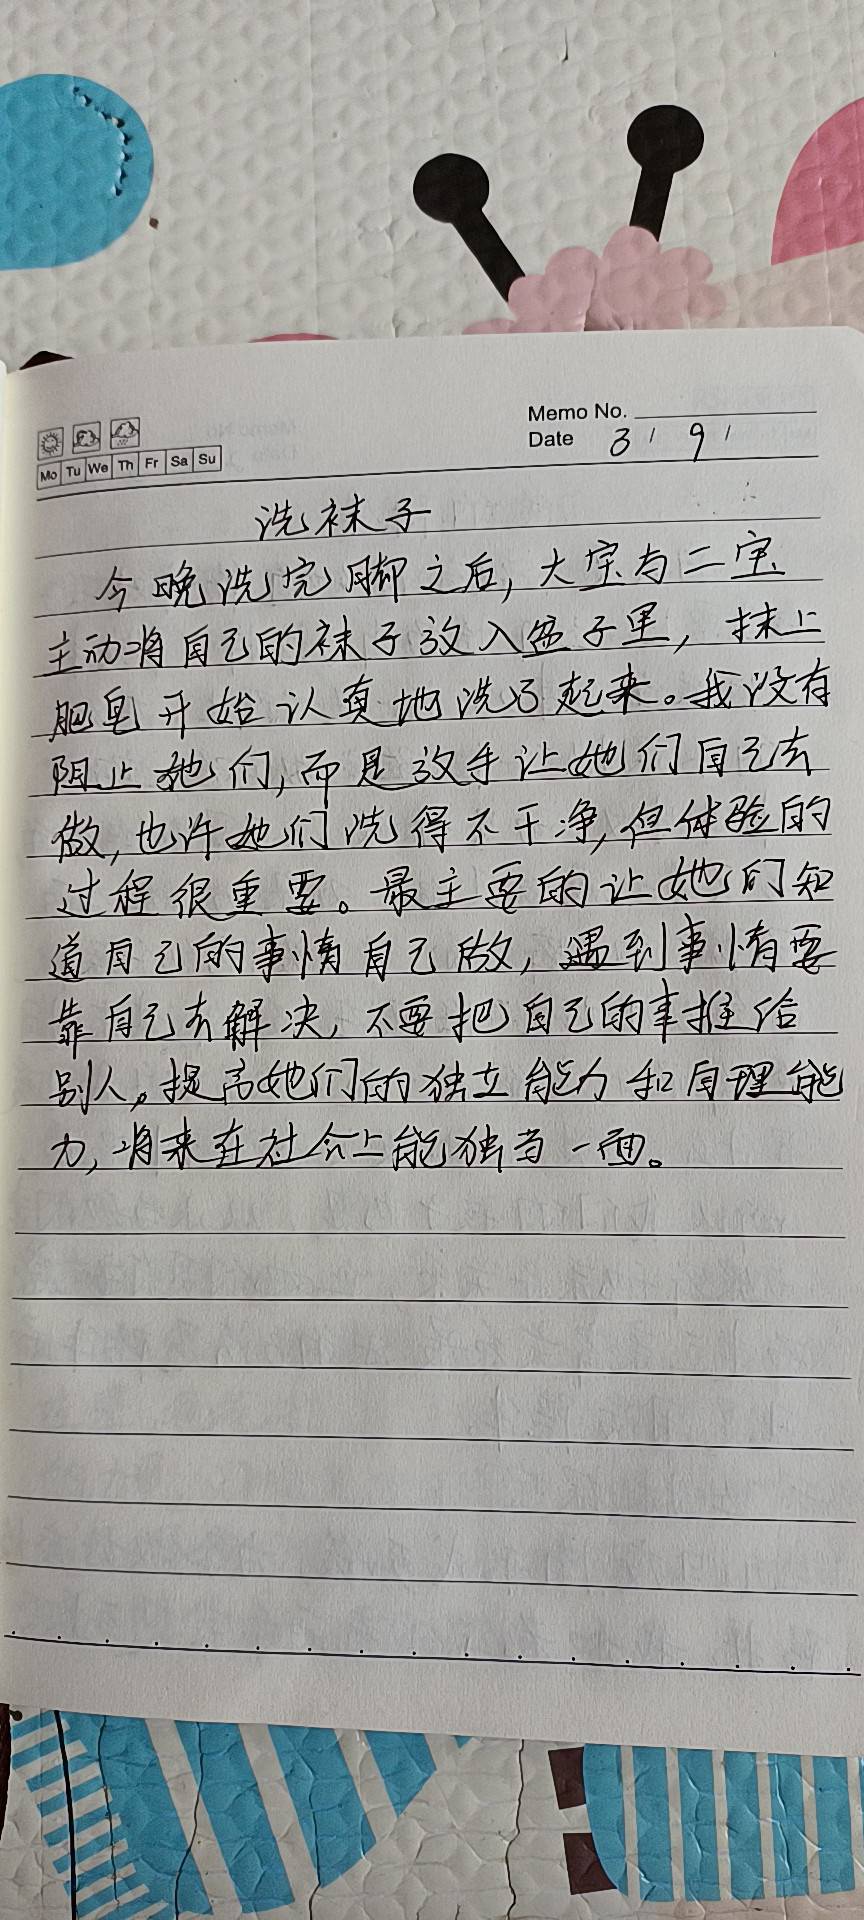 Memo No.
Date 3 / 9 /
Mo Tu We Th Fr Sa Su
洗袜子
今晚洗完脚之后,大宝与二宝
主动将自己的袜子放入盆子里,抹上
肥皂开始认真地洗了起来。我没有
阻止她们,而是放手让她们自己去
做,也许她们洗得不干净,但体验的
过程很重要。最主要的让她们知
道自己的事情自己做,遇到事情要
靠自己去解决,不要把自己的事推给
别人。提高她们的独立能力和自理能
力,将来在社会上能独当一面。